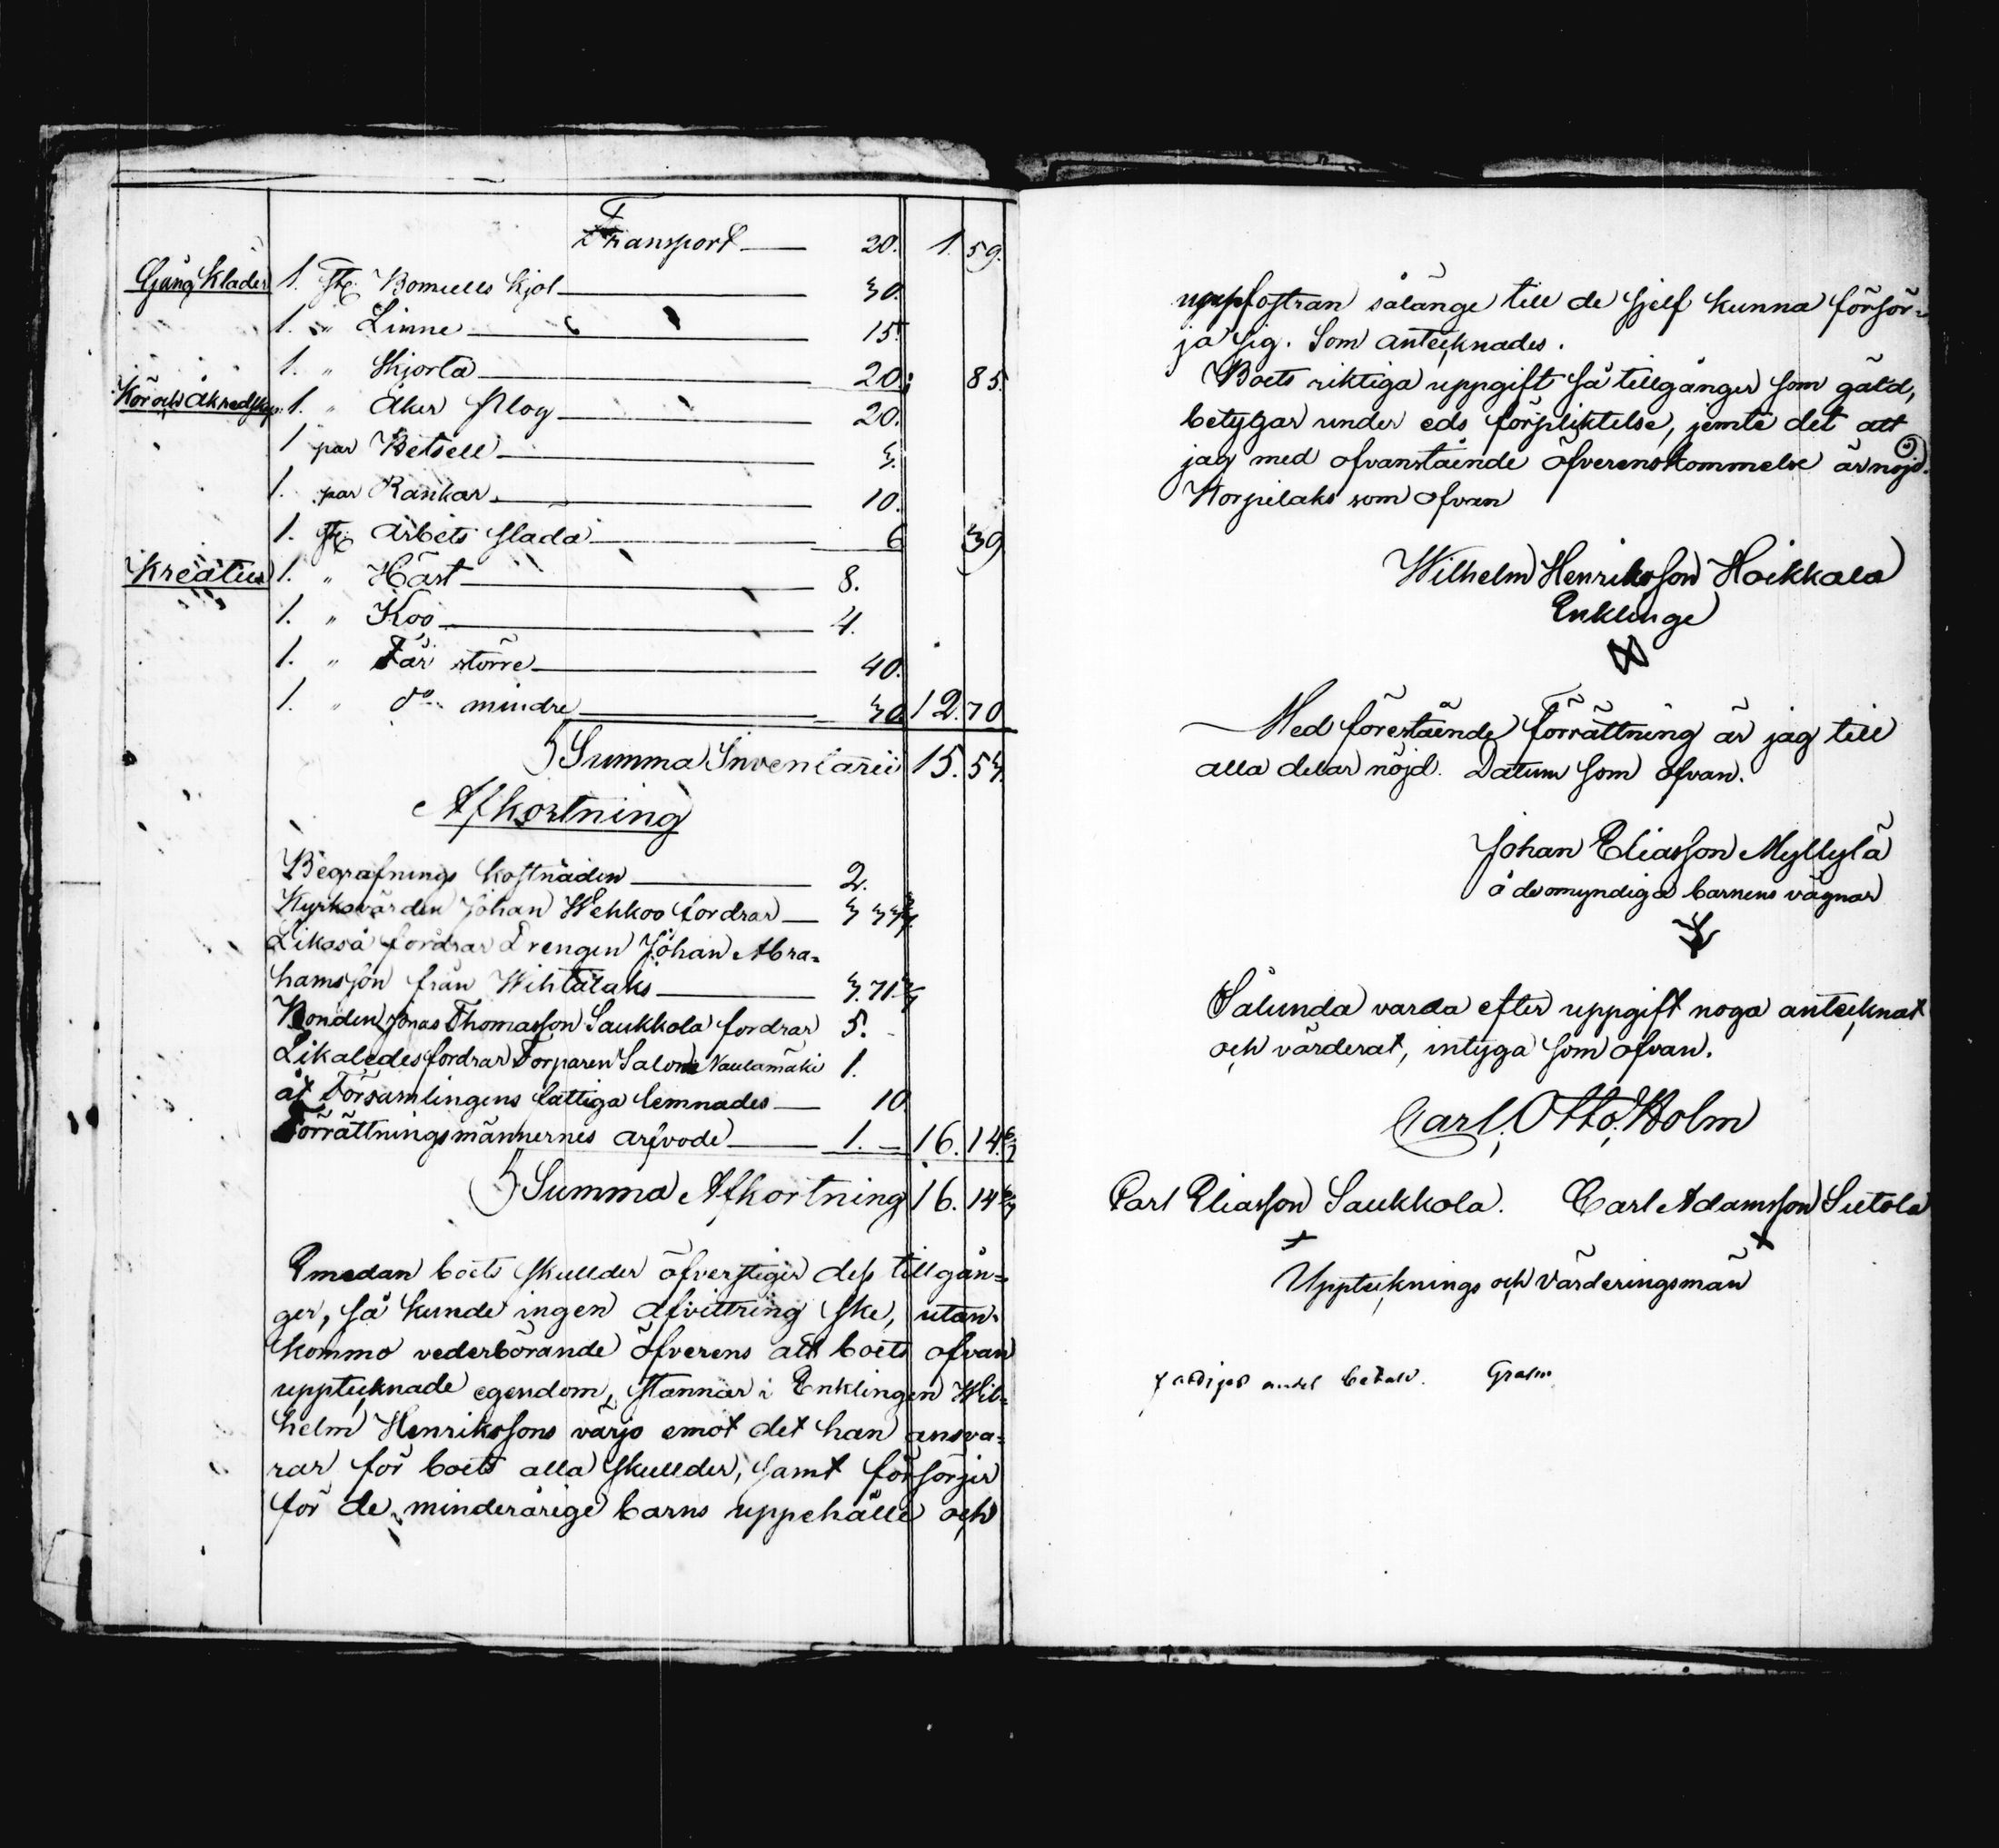 Transport 20. 1. 59.
Gång Kläder 1. st. Bomulls Kjol 30.
1. " Linne 15.
1. " Skjorta 20. 85.
Kör och Åkredskap 1. " Åker Plog 20.
1 par Betsell 3.
1. par Rankar 10.
1. st. Arbets slada 6 39
Kreatur 1. " Häst 8.
1. " Koo 4.
1. " Får större 40.
1. " do mindre 30 12. 70
Summa Inventarii 15. 53.
Afkortning
Begrafnings kostnaden 2.
Kyrkovärden Johan Wehkoo fordrar 3 33 3/7
Likaså fordrar Drengen Johan Abra=
hamsson från Wihtalaks 3. 71. 3/7
Bonden Jonas Thomasson Saukkola fordrar 5. -
Likaledes fordrar Torparen Salom Naulamäki 1.
åt Församlingens fattiga lemnades 10
Förrättningsmännernes arfvode 1. - 16. 14 6/7
Summa Afkortning 16. 14 6/7
Emedan boets skullder öfverstiger dess tillgån=
ger, så kunde ingen afvittring ske, utan
kommo vederbörande öfverens att boets ofvan
uppteknade egendom, stannar i Enklingen Wil=
helm Henrikssons värjo emot det han ansva=
rar för boets alla skullder, samt försörjer
för de minderårige barns uppehälle och
uppfostran sålänge till de sjelf kunna försör=
ja sig. Som antecknades.
Boets riktiga uppgift så tillgånger som gäld,
betygar under eds förpliktelse, jemte det att
jag med ofvanstående öfverenskommelse är nöjd.
Korpilaks som ofvan
Wilhelm Henriksson Hoikkala
Enklinge
Med förestående Förrättning är jag till
alla delar nöjd. Datum som ofvan.
Johan Eliasson Myllylä
å de omyndiga barnens vägnar
Sålunda varda efter uppgift noga antecknat
och värderat, intyga som ofvan.
Carl Otto Holm
Carl Eliasson Saukkola. Carl Adamsson Sutola
Upptecknings och Värderingsmän
fattiges andel betald.